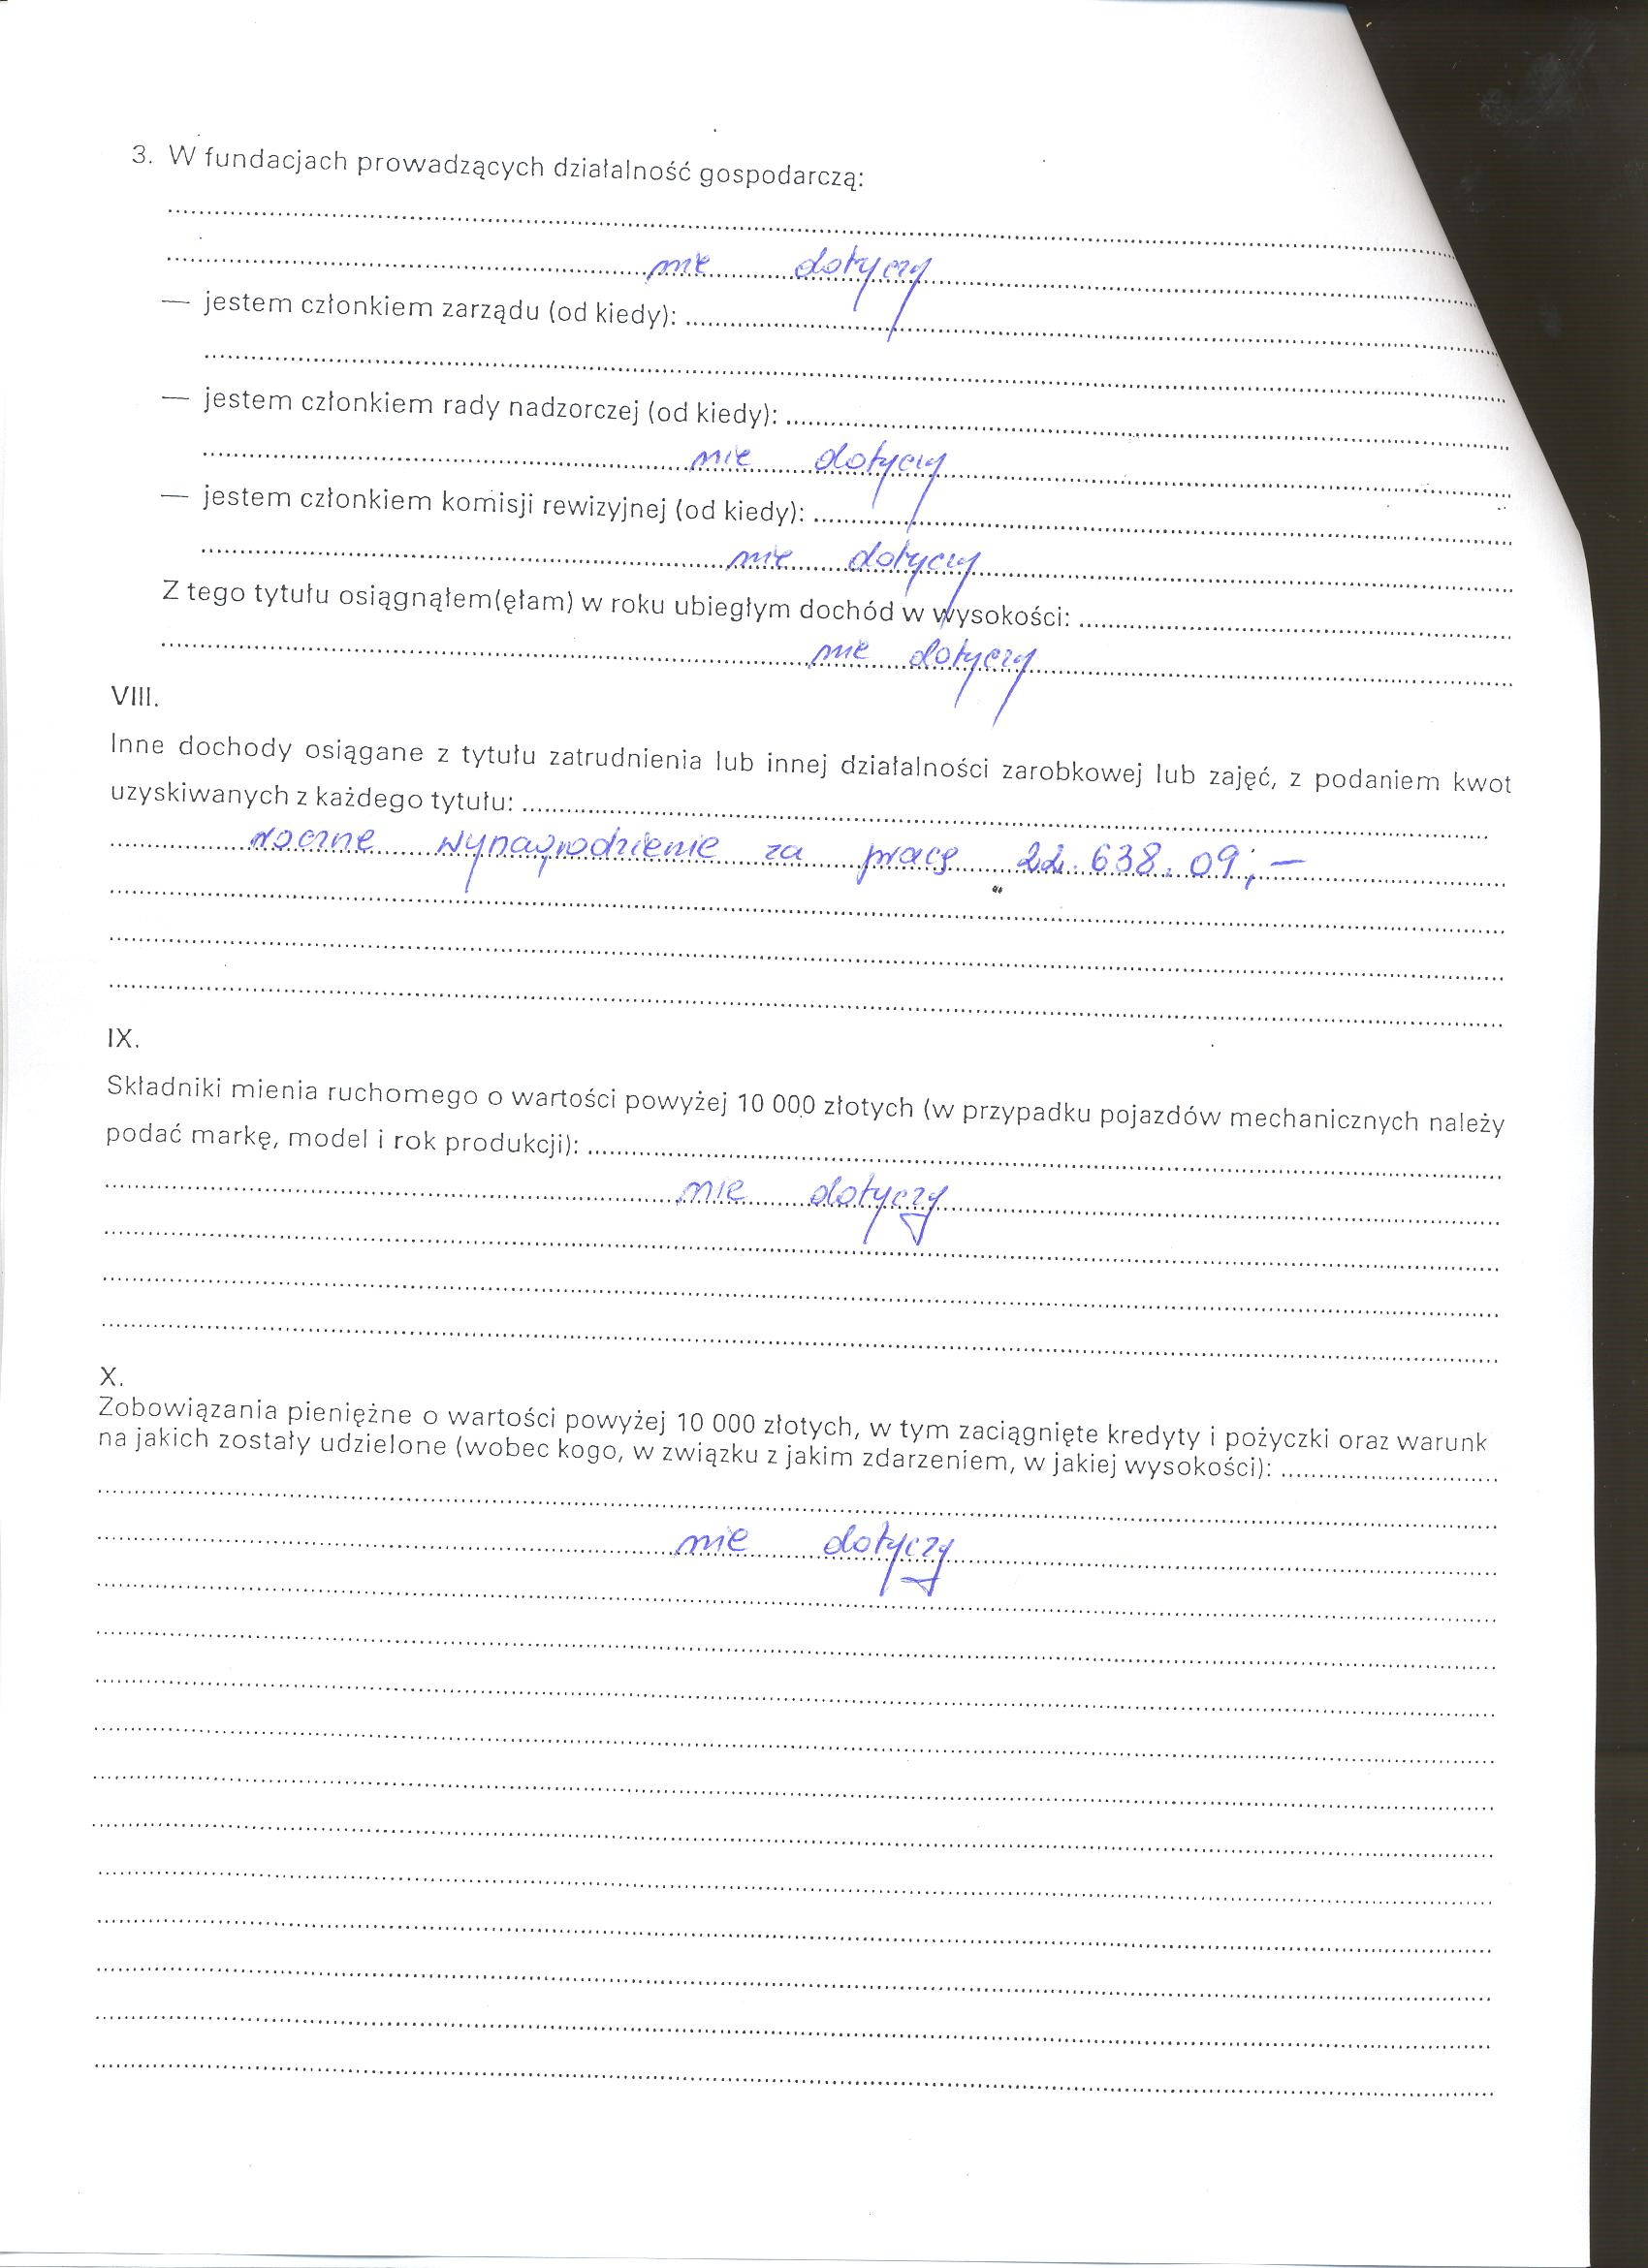 3. W fundacjach prowadzących działalność gospodarczą:
nie dotyczy
— jestem członkiem zarządu (od kiedy):
— jestem członkiem rady nadzorczej (od kiedy):
nie dotyczy
— jestem członkiem komisji rewizyjnej (od kiedy):
nie dotyczy
Z tego tytułu osiągnąłem(ęłam) w roku ubiegłym dochód w wysokości:
nie dotyczy
VIII.
Inne dochody osiągane z tytułu zatrudnienia lub innej działalności zarobkowej lub zajęć, z podaniem kwot
uzyskiwanych z każdego tytułu:
roczne wynagrodzenie za pracę 22.638,09,–
IX.
Składniki mienia ruchomego o wartości powyżej 10 000 złotych (w przypadku pojazdów mechanicznych należy
podać markę, model i rok produkcji):
nie dotyczy
X.
Zobowiązania pieniężne o wartości powyżej 10 000 złotych, w tym zaciągnięte kredyty i pożyczki oraz warunk
na jakich zostały udzielone (wobec kogo, w związku z jakim zdarzeniem, w jakiej wysokości):
nie dotyczy